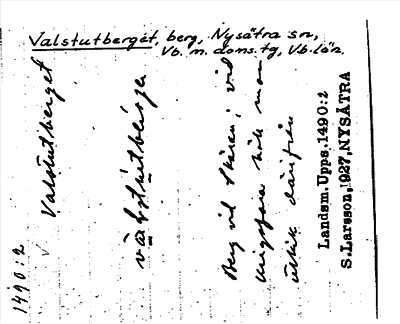 Valstutberget, berg, Nysätra sn,
Vb. m. doms. tg, Vb. län.
Valstutberget
Berg vid Skäran; vid
krigsfara höll man
utkik därifrån
Landsm. Upps. 1490:2
S. Larsson, 1927, NYSÄTRA
1490:2